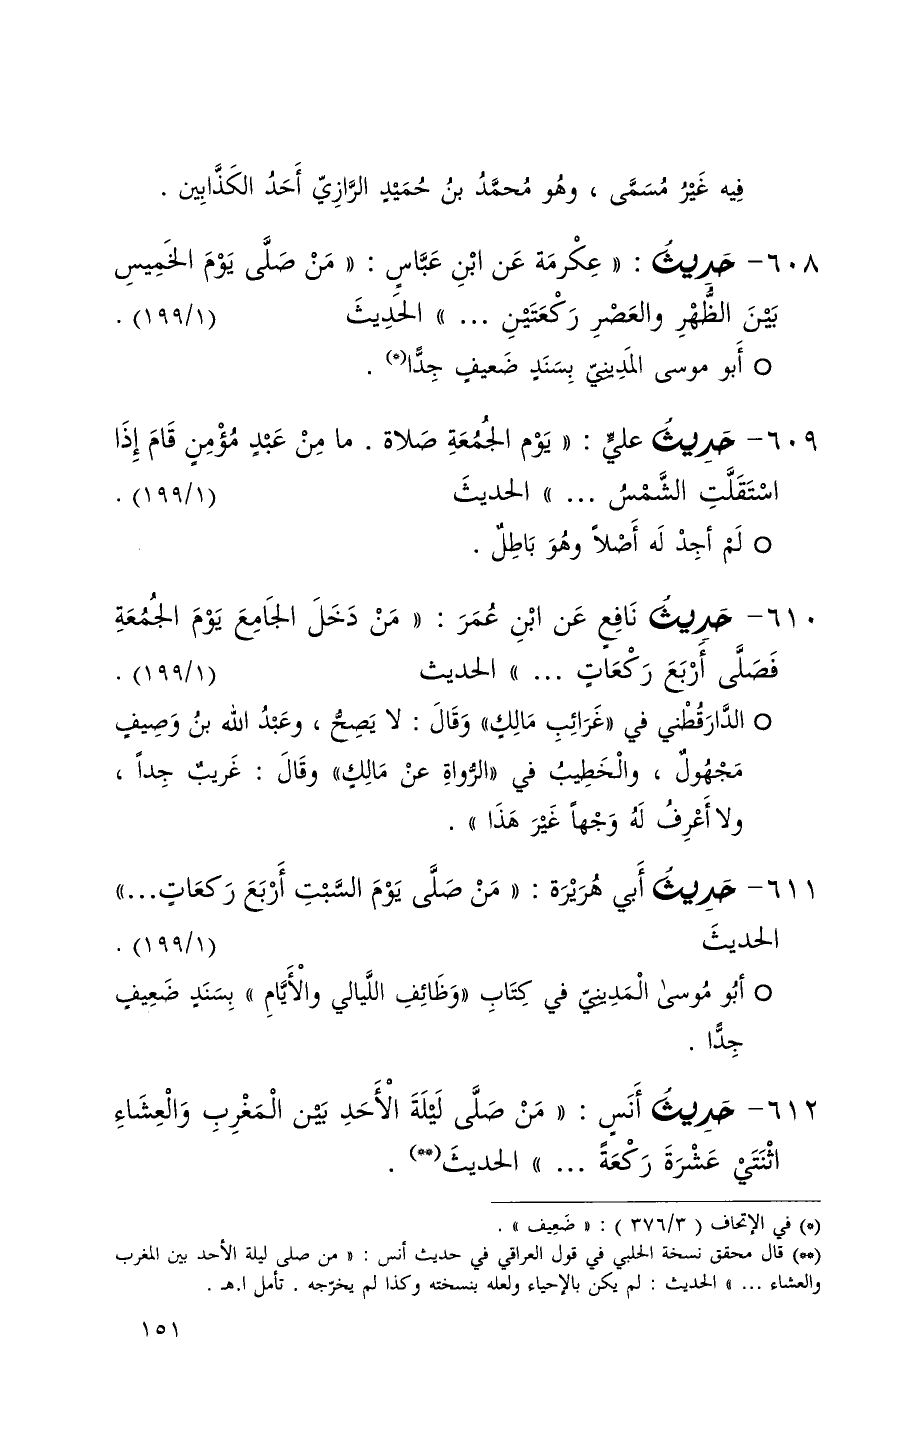 فِيه غَيْرُ مُسَمَّى ، وهُو مُحمَّدُ بنُ حُمَيْدٍ الرَّازِيّ أَحَدُ الكَذَّابِين .
٦٠٨- حَدِيثُ : « عِكْرِمَة عَن ابْنِ عَبَّاسٍ : « مَنْ صَلَّى يَوْمَ الخَمِيسِ
بَيْنَ الظُّهْرِ والعَصْرِ رَكْعَتَيْنِ ... » الحَدِيثَ (١٩٩/١) .
○ أَبو موسى المَدِينِيّ بِسَنَدٍ ضَعيفٍ جِدًّا(*) .
٦٠٩- حَدِيثُ عليٍّ : « يَوْم الجُمُعَةِ صَلاة . ما مِنْ عَبْدٍ مُؤْمِنٍ قَامَ إِذَا
اسْتَقَلَّتِ الشَّمْسُ ... » الحديثَ (١٩٩/١) .
○ لَمْ أجِدْ لَه أَصْلاً وهُوَ بَاطِلٌ .
٦١٠- حَدِيثُ نَافِعٍ عَن ابْنِ عُمَرَ : « مَنْ دَخَلَ الجَامِعَ يَوْمَ الجُمُعَةِ
فَصَلَّى أَرْبَعَ رَكْعَاتٍ ... » الحديث (١٩٩/١) .
○ الدَّارَقُطْني في «غَرَائِبِ مَالِكٍ» وَقَالَ : لا يَصِحُّ ، وعَبْدُ الله بنُ وَصِيفٍ
مَجْهُولٌ ، والْخَطِيبُ في «الرُّواةِ عنْ مَالِكٍ» وقَالَ : غَريبٌ جِداً ،
ولا أَعْرِفُ لَهُ وَجْهاً غَيْرَ هَذَا » .
٦١١- حَدِيثُ أَبي هُرَيْرَة : « مَنْ صَلَّى يَوْمَ السَّبْتِ أَرْبَعَ رَكعَاتٍ...»
الحديثَ (١٩٩/١) .
○ أبُو مُوسىٰ الْمَدِينِيّ في كِتَابِ «وَظَائِفِ اللَّيالي والْأَيَّامِ » بِسَنَدٍ ضَعِيفٍ
جِدًّا .
٦١٢- حَدِيثُ أَنَسٍ : « مَنْ صَلَّى لَيْلَةَ الْأَحَدِ بَيْن الْمَغْرِبِ وَالْعِشَاءِ
اثْنَتَيْ عَشْرَةَ رَكْعَةً ... » الحديثَ(**) .
(*) في الإتحاف ( ٣٧٦/٣ ) : « ضَعِيف » .
(**) قال محقق نسخة الحلبي في قول العراقي في حديث أنس : « من صلى ليلة الأحد بين المغرب
والعشاء ... » الحديث : لم يكن بالإحياء ولعله بنسخته وكذا لم يخرّجه . تأمل ا.هـ .
١٥١